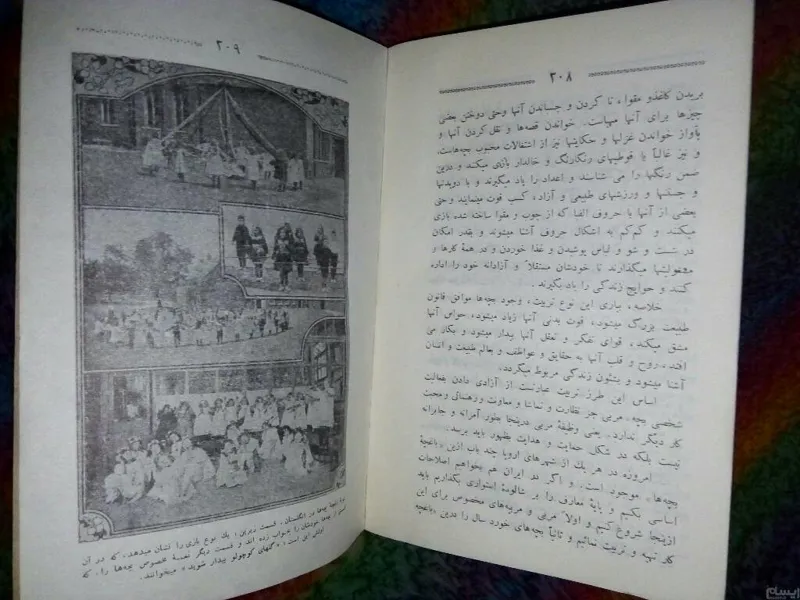 ۲۰۸
بریدن کاغذو مقوا، تا کردن و چسباندن آنها وحتی دوختن بعضی
چیزها برای آنها مهیاست. خواندن قصه‌ها و نقل کردن آنها و
بآواز خواندن غزلها و حکایتها نیز از اشتغالات محبوب بچه‌هاست.
و نیز غالباً با قوطیهای رنگارنگ و خالدار بازی میکند و درین
ضمن رنگها را می شناسند و اعداد را یاد میگیرند و با دویدنها
و جستنها و ورزشهای طبیعی و آزاد، کسب قوت مینمایند وحتی
بعضی از آنها با حروف الفبا که از چوب و مقوا ساخته شده بازی
میکنند و کم‌کم به اشکال حروف آشنا میشوند و بقدر امکان
در شست و شو و لباس پوشیدن و غذا خوردن و در همهٔ کارها و
مشغولیتها میگذارند تا خودشان مستقلاً و آزادانه خود را اداره
کنند و حوایج زندگی را یاد بگیرند.
خلاصه، بیاری این نوع تربیت، وجود بچه‌ها موافق قانون
طبیعت بزرگ میشود، قوت بدنی آنها زیاد میشود، حواس آنها
مشق میکند، قوای تفکر و تعقل آنها بیدار میشود و بکار می
افتد، روح و قلب آنها به حقایق و عواطف و بعالم طبیعت و انسان
آشنا میشود و بشئون زندگی مربوط میگردد.
اساس این طرز تربیت عبارتست از آزادی دادن بفعالیت
شخصی بچه. مربی جز نظارت و تماشا و معاونت ورهنمائی ومحبت
کار دیگری ندارد. یعنی وظیفهٔ مربی درینجا بطور آمرانه و جابرانه
نیست بلکه در شکل حمایت و هدایت بظهور باید برسد.
امروزه در هر یك از شهرهای اروپا چند باب ازین «باغچهٔ
بچه‌ها» موجود است. و اگر در ایران هم بخواهیم اصلاحات
اساسی بکنیم و پایهٔ معارف را بر شالودهٔ استواری بگذاریم باید
ازینجا شروع کنیم و اولاً مربی و مربیه های مخصوص برای این
کار تهیه و تربیت نمائیم و ثانیاً بچه‌های خورد سال را درین «باغچه
۲۰۹
بچه‌ها در انگلستان. قسمت زبرین، یك نوع بازی را نشان میدهد، که در آن
خودشان را بخواب زده اند و قسمت دیگر نغمهٔ مخصوص بچه‌ها را، که
این است: «گلهای کوچولو بیدار شوید» میخوانند.
ایسام